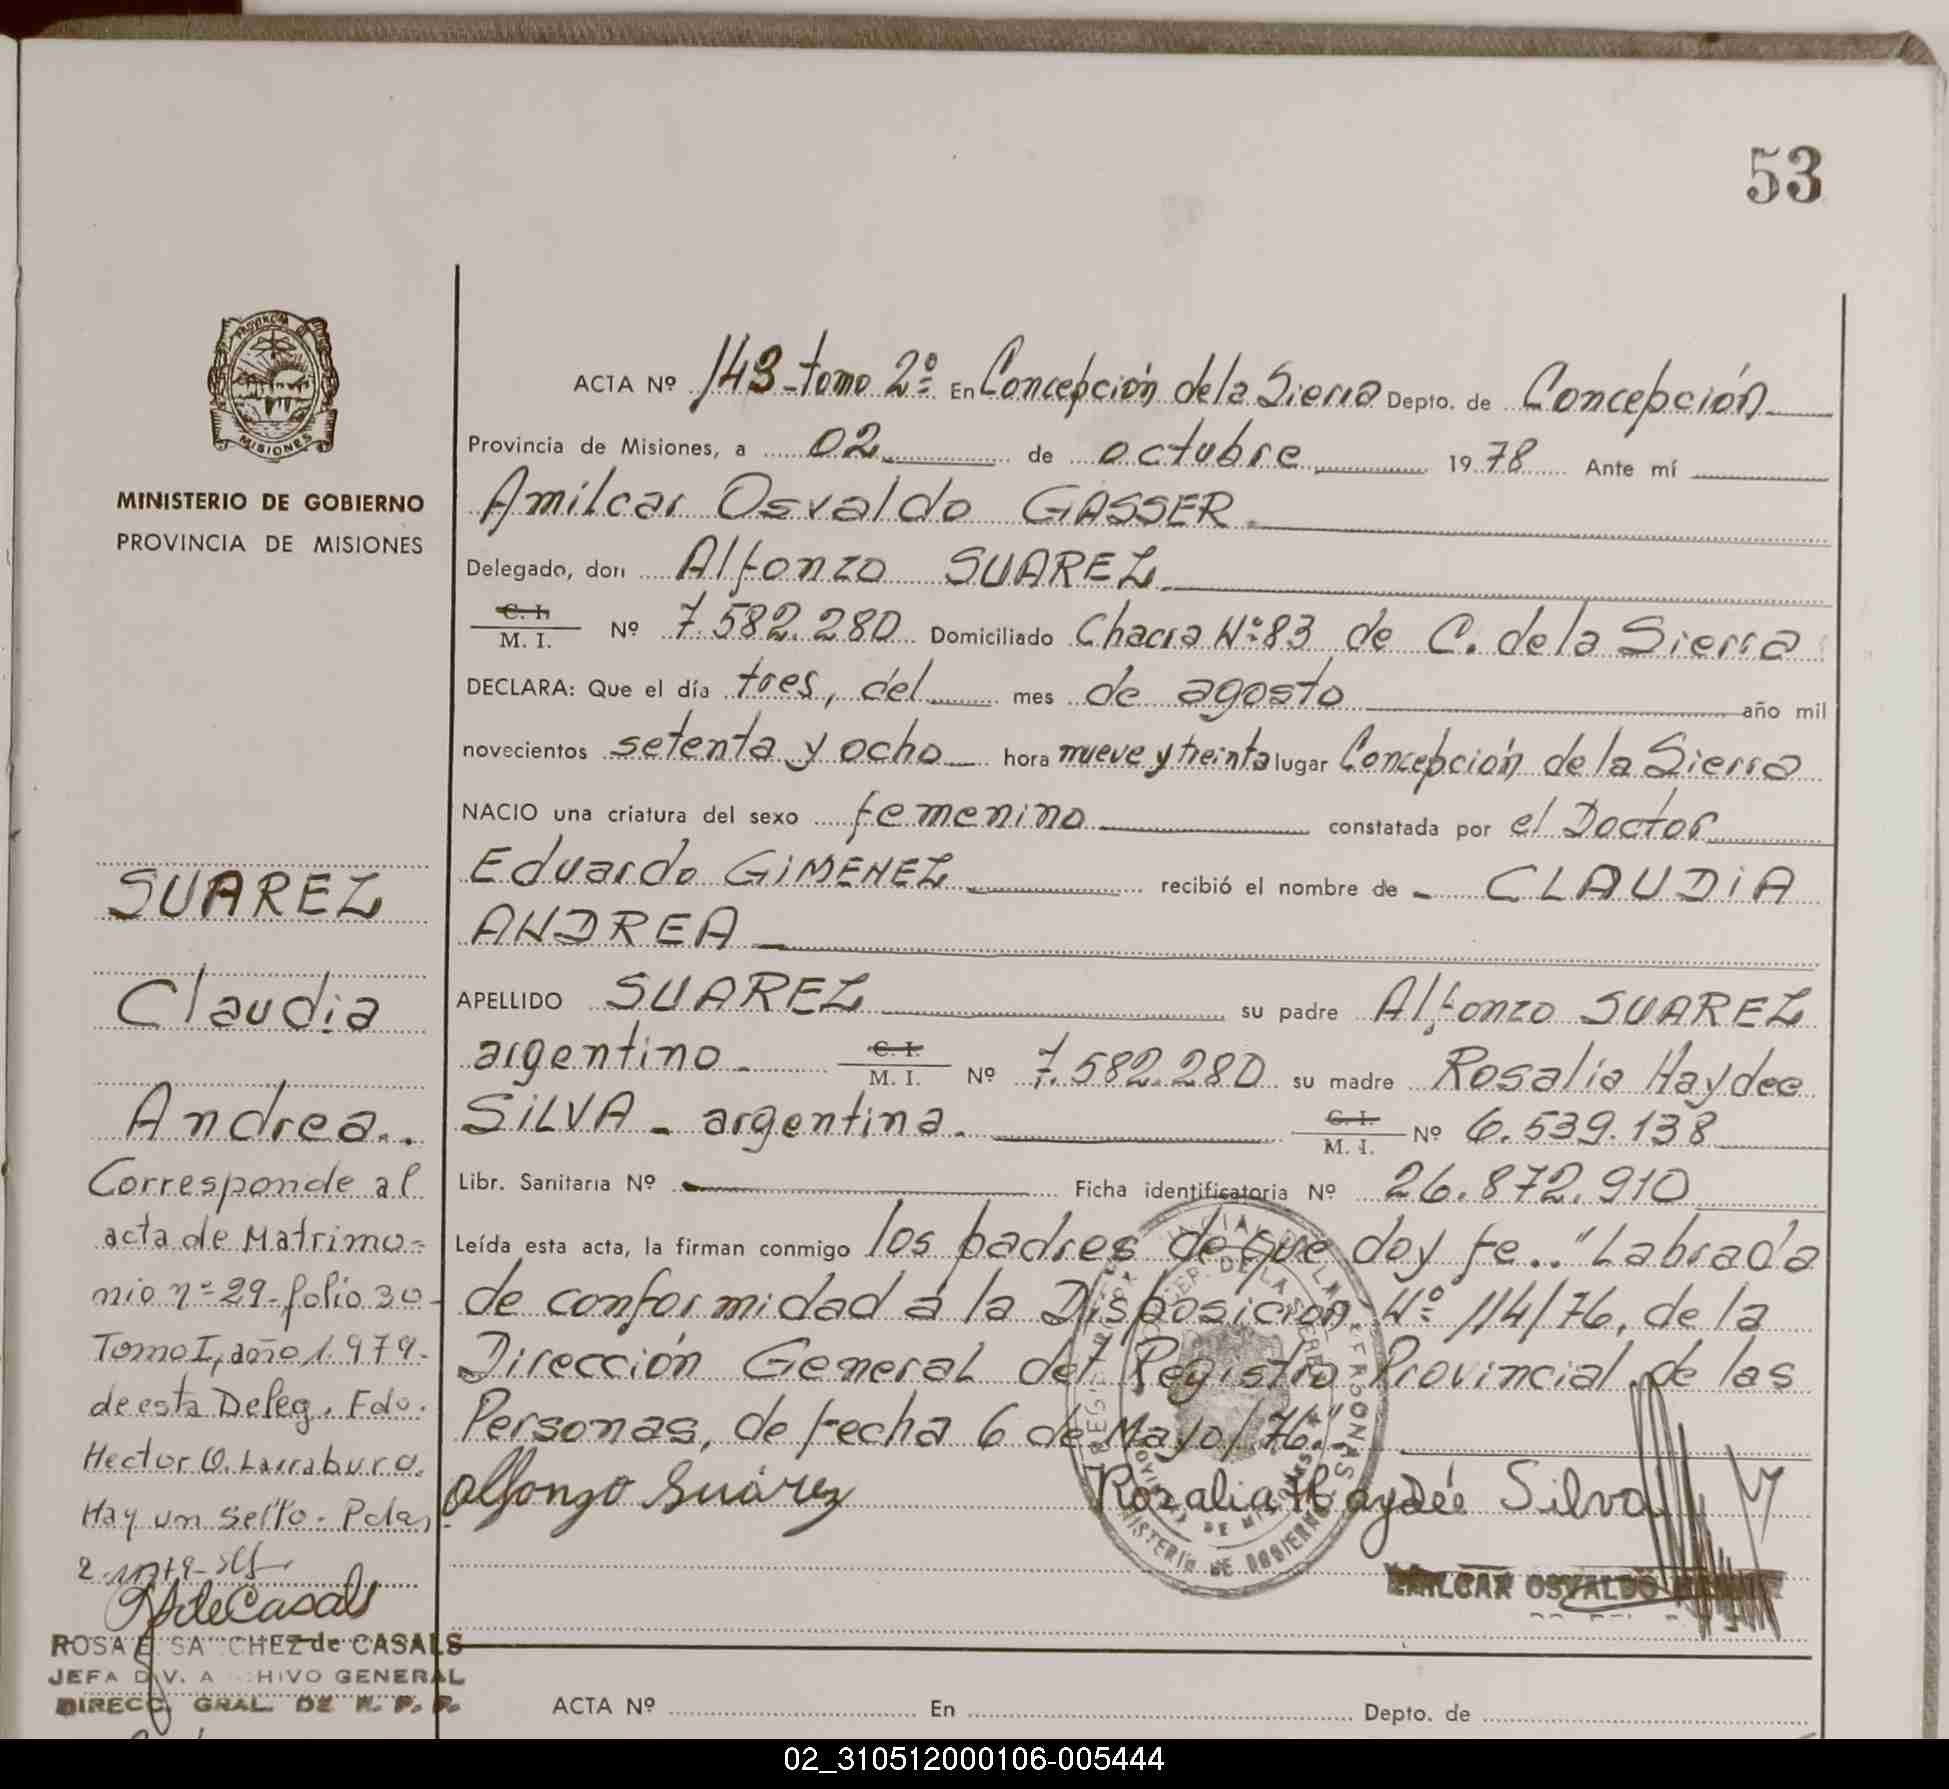 53
PROVINCIA DE
MISIONES
MINISTERIO DE GOBIERNO
PROVINCIA DE MISIONES
ACTA Nº 143-tomo 2º En Concepción de la Sierra Depto. de Concepción
Provincia de Misiones, a 02 de octubre 1978 Ante mí
Amilcar Osvaldo GASSER
Delegado, don Alfonzo SUAREZ
C. I.
M. I. Nº 7.582.280 Domiciliado Chacra Nº 83 de C. de la Sierra
DECLARA: Que el día tres, del mes de agosto año mil
novecientos setenta y ocho hora nueve y treinta lugar Concepción de la Sierra
NACIO una criatura del sexo femenino constatada por el Doctor
Eduardo GIMENEZ recibió el nombre de - CLAUDIA
ANDREA
APELLIDO SUAREZ su padre Alfonzo SUAREZ
argentino C. I.
M. I. Nº 7.582.280 su madre Rosalia Haydee
SILVA - argentina. C. I.
M. I. Nº 6.539.138
Libr. Sanitaria Nº Ficha identificatoria Nº 26.872.910
Leída esta acta, la firman conmigo los padres de que doy fe.. "Labrada
de conformidad á la Disposición Nº 114/76, de la
Dirección General del Registro Provincial de las
Personas, de fecha 6 de Mayo/76."
Alfonzo Suárez Rozalia Haydée Silva
AMILCAR OSVALDO
SUAREZ
Claudia
Andrea..
Corresponde al
acta de Matrimo=
nio nº 29-folio 30-
Tomo I, año 1.979-
de esta Deleg. Fdo.
Hector O. Larraburo.
Hay un sello. Pdas,
RSdeCasals
ROSA E. SANCHEZ de CASALS
JEFA DIV. ARCHIVO GENERAL
DIRECC. GRAL. DE R. P. P.
MINISTERIO DE GOBIERNO
ACTA Nº En Depto. de
02_310512000106-005444